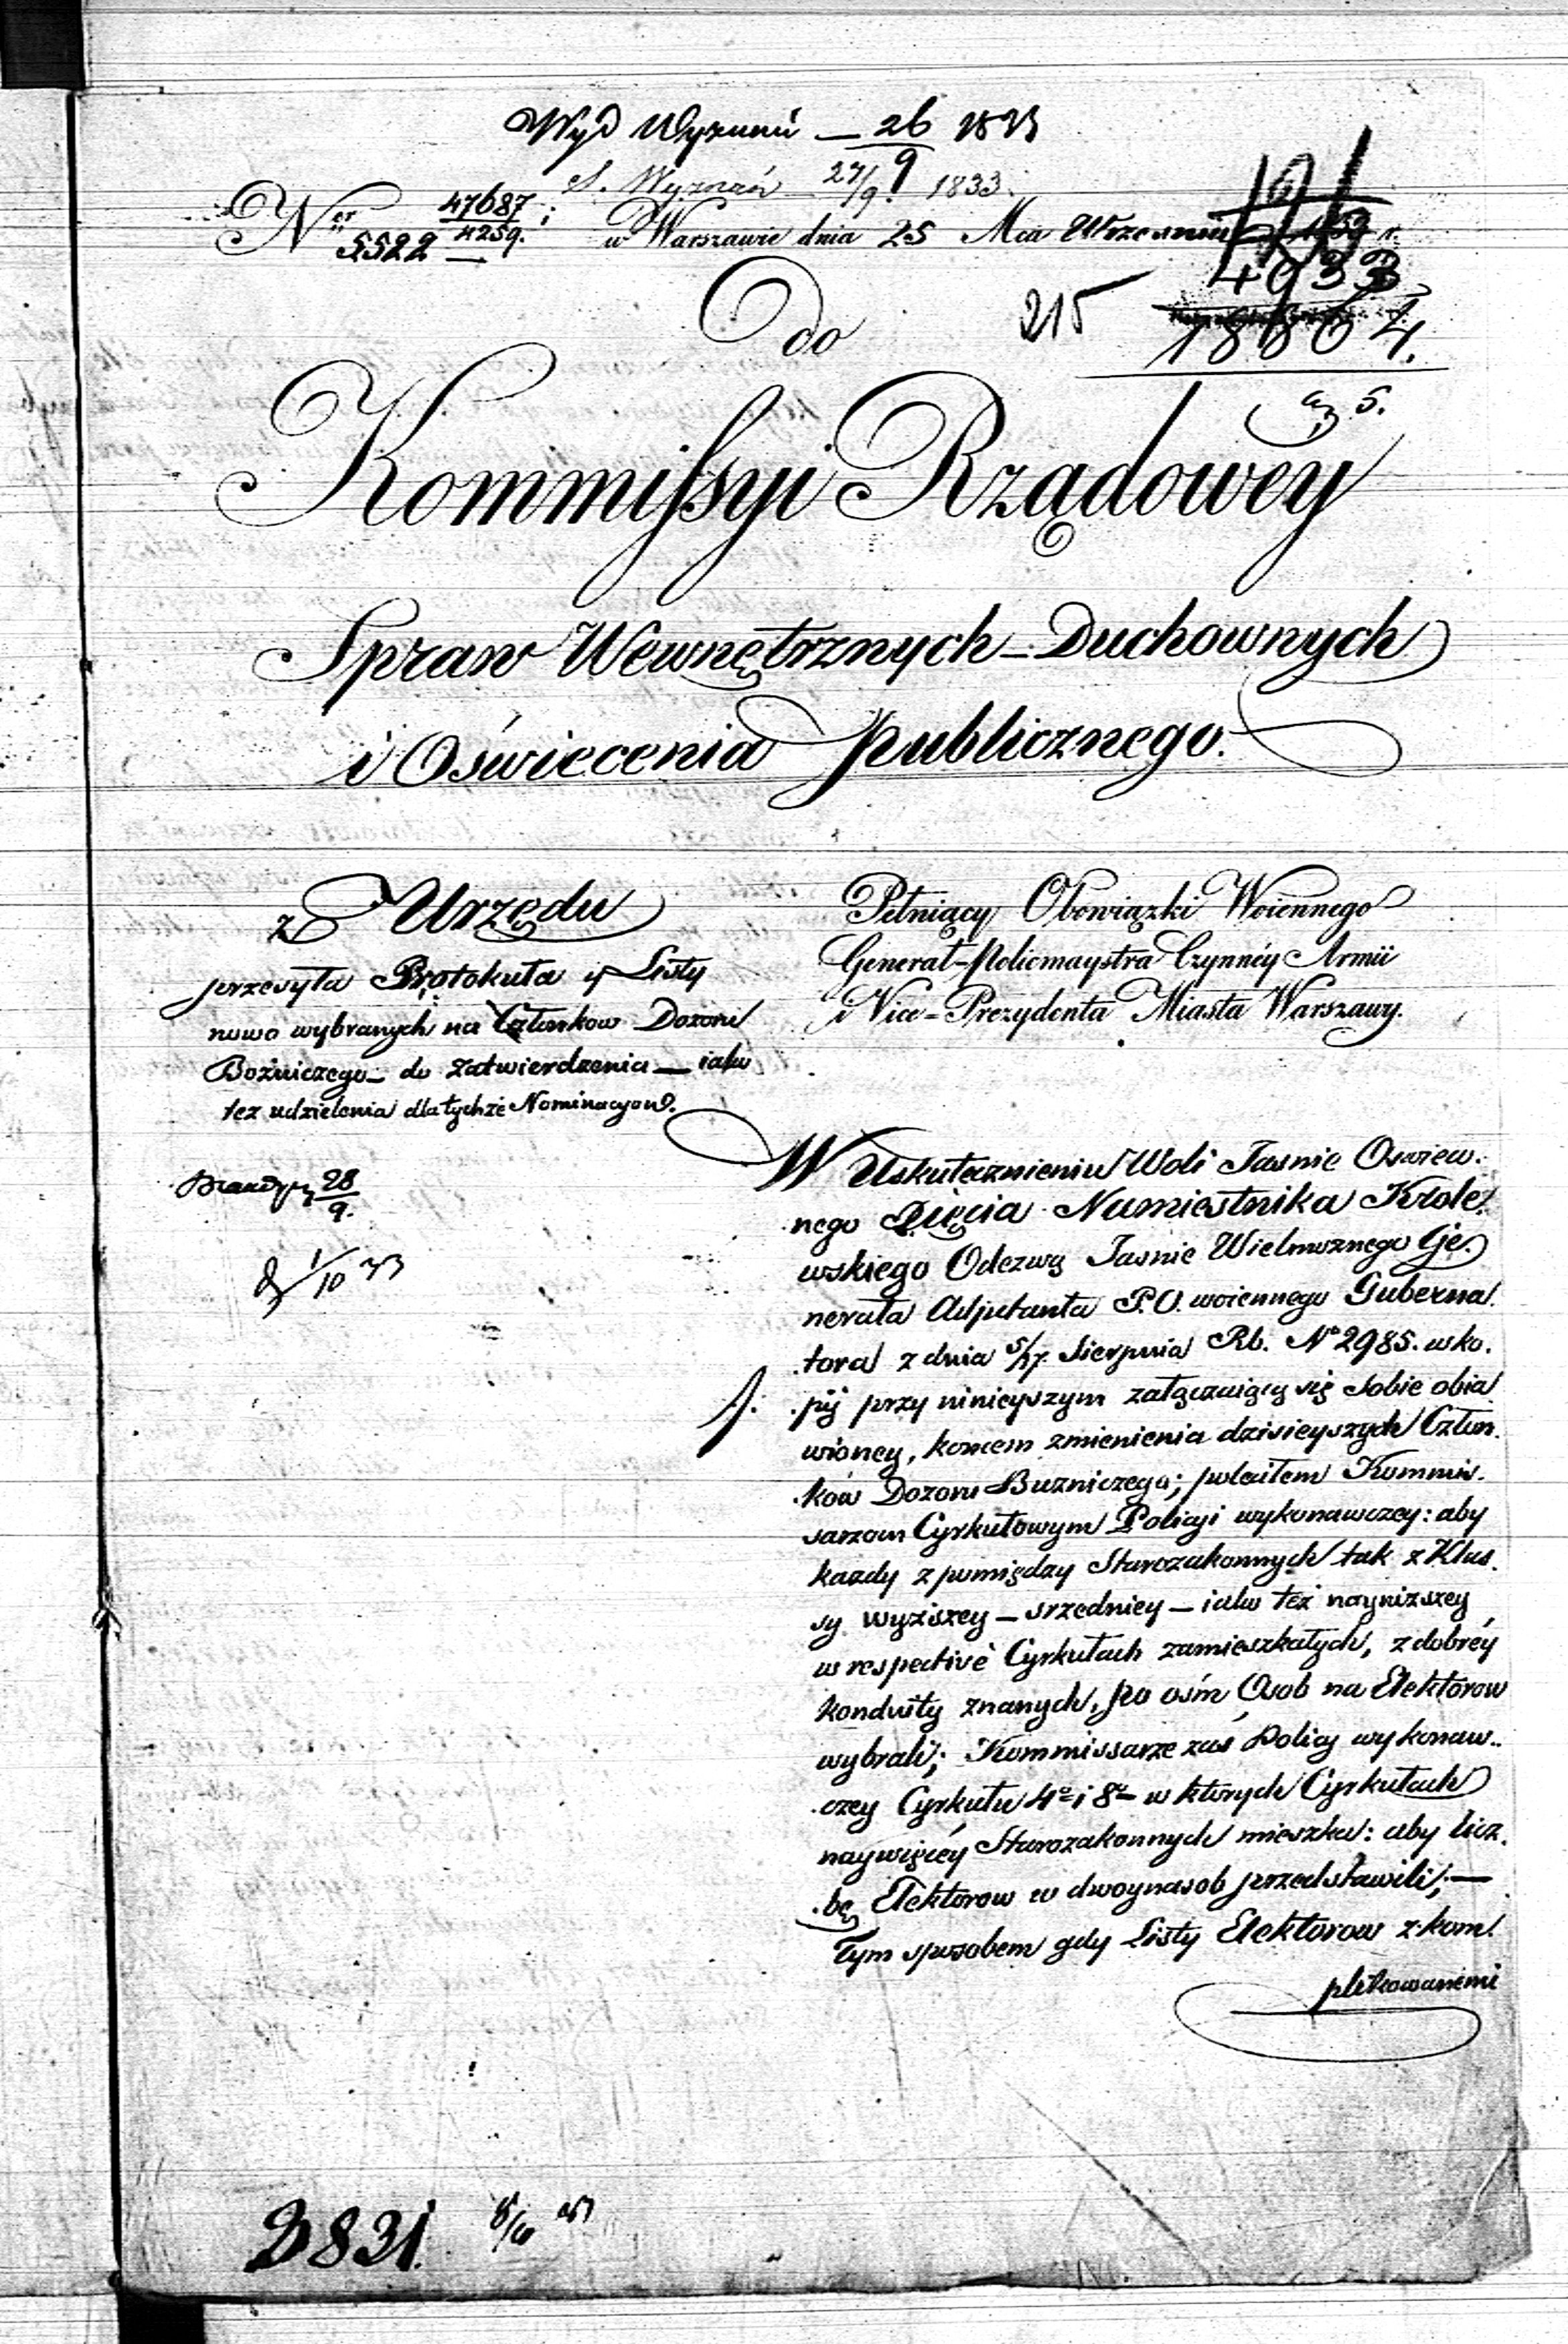 Wyd Wyznań — 26/9 1833
S. Wyznań 27/9 1833.
Ner 47687/4259.
5522 —
w Warszawie dnia 25 Mca Września
4933
18864.
215
Do
Kommissyi Rządowey
Spraw Wewnętrznych – Duchownych
i Oświecenia Publicznego.
z Urzędu
przesyła Protokuła y Listy
nowo wybranych na Członkow Dozoru
Bożniczego – do zatwierdzenia — iako
tez udzielenia dla tychże Nominacyow.
28/9.
1/10 33
Pełniący Obowiązki Woiennego
Generał-Policmaystra Czynnéy Armii
i Vice-Prezydenta Miasta Warszawy.
W Uskutecznieniu Woli Jasnie Oswiew.
nego Xięcia Namiestnika Krole.
wskiego Odezwą Jasnie Wielmoznego Ge.
nerała Adjutanta P.O. woiennego Guberna.
tora z dnia 5/17. Sierpnia Rb. No 2985. w ko.
pij przy ninieyszym załączaiący się sobie obia
wioney, koncem zmienienia dzisieyszych Człon.
ków Dozoru Buzniczego; poleciłem Kommis.
sarzom Cyrkułowym Policyi wykonawczey: aby
kazdy z pomiędzy Starozakonnych tak z Klas.
sy wyzszey – srzedniey – iako też nayniższey
w respective Cyrkułach zamieszkałych, z dobréy
konduity znanych, po osm Osob na Elektorow
wybrali; Kommissarze zaś Policy wykonaw..
czey Cyrkułu 4o i 8o w ktorych Cyrkułach
naywięcéy Starozakonnych mieszka: aby licz.
bę Elektorow w dwoynasob przedstawili; —
Tym sposobem gdy Listy Elektorow z kom.
pletowanemi
3831.